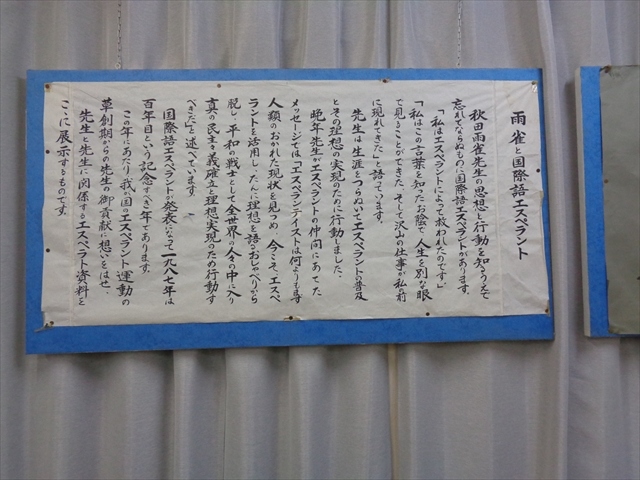 雨雀と国際語エスペラント
秋田雨雀先生の思想と行動を知るうえで
忘れてならぬものに国際語エスペラントがあります。
「私はエスペラントによって救われたのです」
「私はこの言葉を知ったお陰で、人生を別な眼
で見ることができた。そして沢山の仕事が私の前
に現れてきた」と語っています。
先生は生涯をつらぬいてエスペラントの普及
とその理想の実現のために行動しました。
晩年先生がエスペラントの仲間にあてた
メッセージでは「エスペランティストは何よりもまず
人類のおかれた現状を見つめ、今こそ、エスペ
ラントを活用し、たんに理想を語るおしゃべりから
脱し、平和の戦士として全世界の人々の中に入り
真の民主主義確立と理想実現のため行動す
べきだ」と述べています。
国際語エスペラントが発表になって一九八七年は
百年目という記念すべき年であります。
この年にあたり我が国のエスペラント運動の
草創期からの先生の御貢献に想いをはせ、
先生と先生に関係するエスペラント資料を
ここに展示するものです。